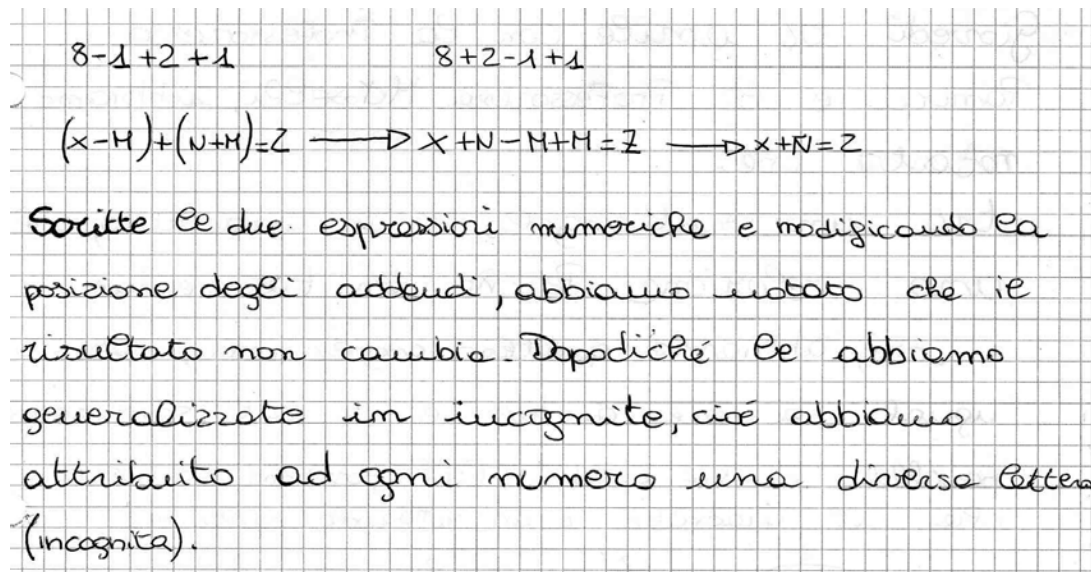 8-1+2+1 8+2-1+1
(x-M)+(N+M)=Z → X+N-M+M=Z → x+N=Z
Scritte le due espressioni numeriche e modificando la
posizione degli addendi, abbiamo notato che il
risultato non cambia. Dopodiché le abbiamo
generalizzate in incognite, cioé abbiamo
attribuito ad ogni numero una diversa lettera
(incognita).